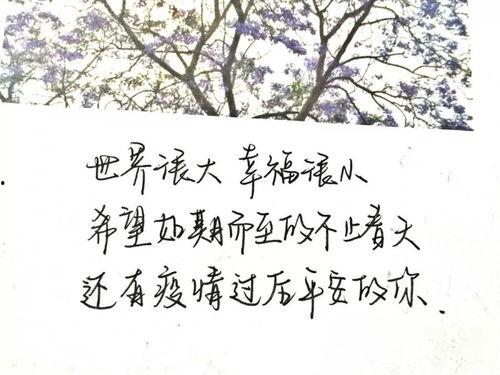 世界很大 幸福很小
希望如期而至的不止春天
还有疫情过后平安的你.